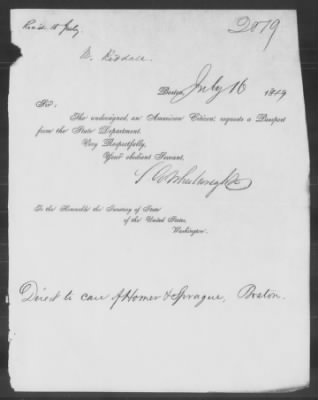 2079
Rec'd 18 July.
Boston, July 16 1849
Sir:
The undersigned, an American Citizen, requests a Passport
from the State Department.
Very Respectfully,
Your obedient Servant,
To the Honorable the Secretary of State
of the United States,
Washington.
Direct to care of Homer & Sprague, Boston.